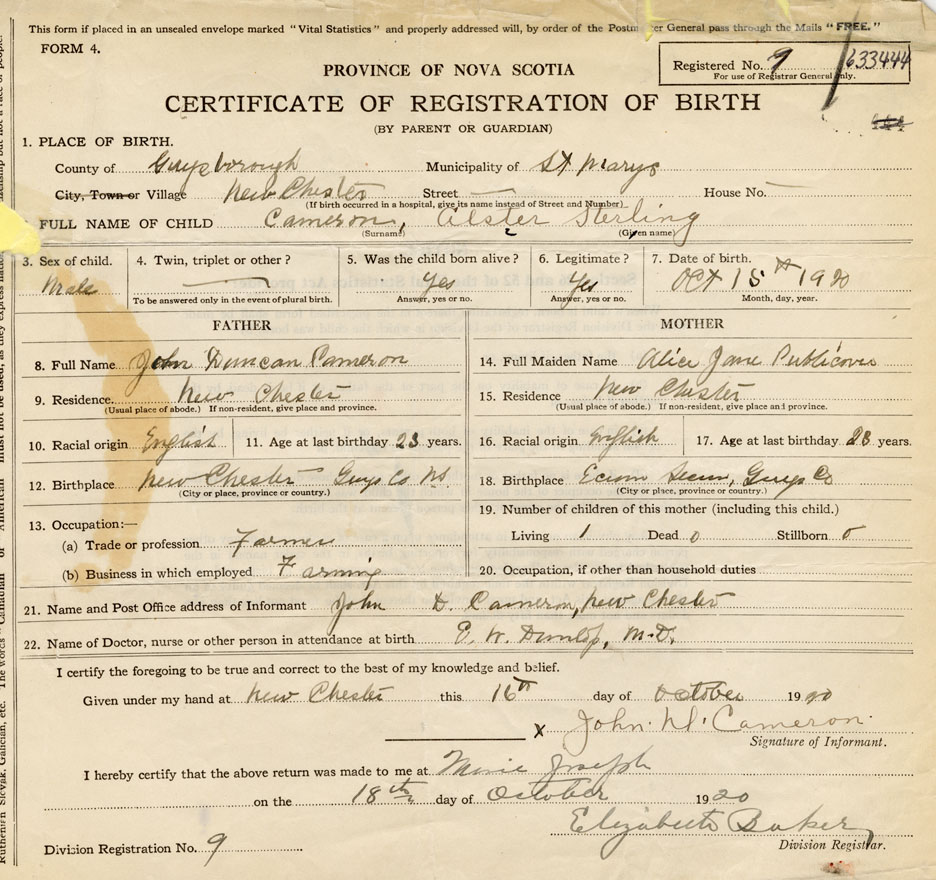 This form if placed in an unsealed envelope marked "Vital Statistics" and properly addressed will, by order of the Postmaster General pass through the Mails "FREE."
FORM 4.
Registered No. 9 633444
For use of Registrar General only.
PROVINCE OF NOVA SCOTIA
CERTIFICATE OF REGISTRATION OF BIRTH
(BY PARENT OR GUARDIAN)
1. PLACE OF BIRTH.
County of Guysborough Municipality of St Marys
City, Town or Village New Chester Street — House No. —
(If birth occurred in a hospital, give its name instead of Street and Number)
FULL NAME OF CHILD Cameron, Alster Sterling
(Surname) (Given name)
3. Sex of child. 4. Twin, triplet or other? 5. Was the child born alive? 6. Legitimate? 7. Date of birth.
Male — Yes Yes Oct 15th 1920
To be answered only in the event of plural birth. Answer, yes or no. Answer, yes or no. Month, day, year.
FATHER MOTHER
8. Full Name John Duncan Cameron 14. Full Maiden Name Alice Jane Publicover
9. Residence. New Chester 15. Residence New Chester
(Usual place of abode.) If non-resident, give place and province. (Usual place of abode.) If non-resident, give place and province.
10. Racial origin English 11. Age at last birthday 23 years. 16. Racial origin English 17. Age at last birthday 23 years.
12. Birthplace New Chester Guys Co NS 18. Birthplace Ecum Secum, Guys Co
(City or place, province or country.) (City or place, province or country.)
19. Number of children of this mother (including this child.)
13. Occupation:—
(a) Trade or profession Farmer Living 1 Dead 0 Stillborn 0
(b) Business in which employed Farming 20. Occupation, if other than household duties
21. Name and Post Office address of Informant John D. Cameron, New Chester
22. Name of Doctor, nurse or other person in attendance at birth E. W. Dunlop, M.D.
I certify the foregoing to be true and correct to the best of my knowledge and belief.
Given under my hand at New Chester this 16th day of October 1920
x John D. Cameron.
Signature of Informant.
I hereby certify that the above return was made to me at Marie Joseph
on the 18th day of October 1920
Elizabeth Baker
Division Registrar.
Division Registration No. 9